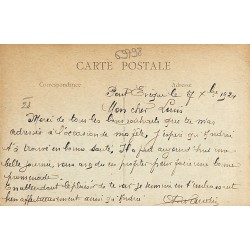 63798
CARTE POSTALE
Correspondance Adresse
Pont Evêque le 9 Xbre 1924
21
Mon cher Louis
Merci de tous les bons souhaits que tu m'as
adressés à l'occasion de ma fête. J'espère qu'André
t'a trouvé en bonne santé. Il a fait aujourd'hui une
belle journée, vous avez dû en profiter pour faire une bonne
promenade.
En attendant le plaisir de te voir je
bien affectueusement ainsi qu'André.